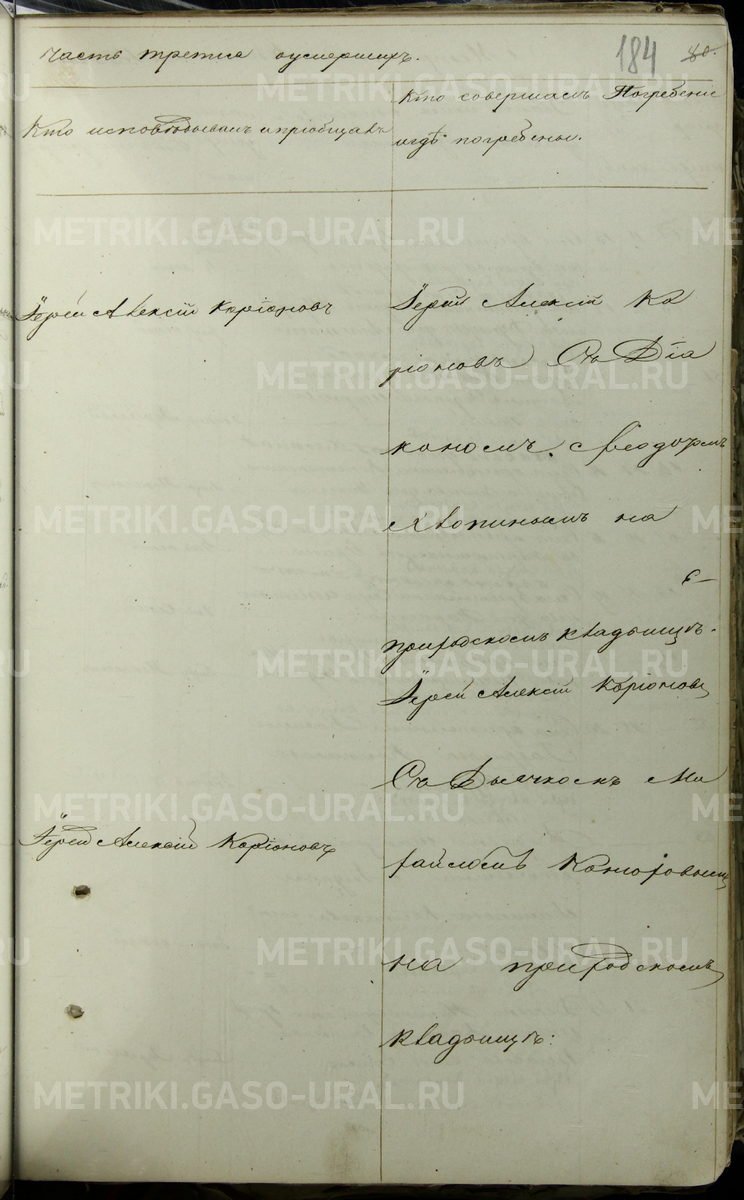 Часть третия оумершихъ.
184
80.
Кто исповѣдывалъ и пріобщалъ
Кто совершалъ Погребеніе
и гдѣ погребены.
Іерей Алексій Каріоновъ
Іерей Алексій Ка
ріоновъ Съ Діа
кономъ Ѳеодоромъ
на
приходскомъ кладбищѣ.
Іерей Алексій Каріоновъ
Съ Дьячкомъ Ми
хайломъ
Іерей Алексій Каріоновъ
на приходскомъ
кладбищѣ:
METRIKI.GASO-URAL.RU